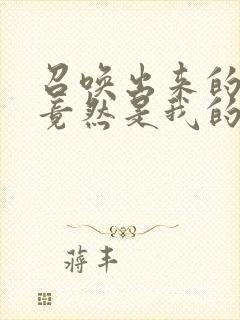 召唤出来的
竟然是我的
蒋丰